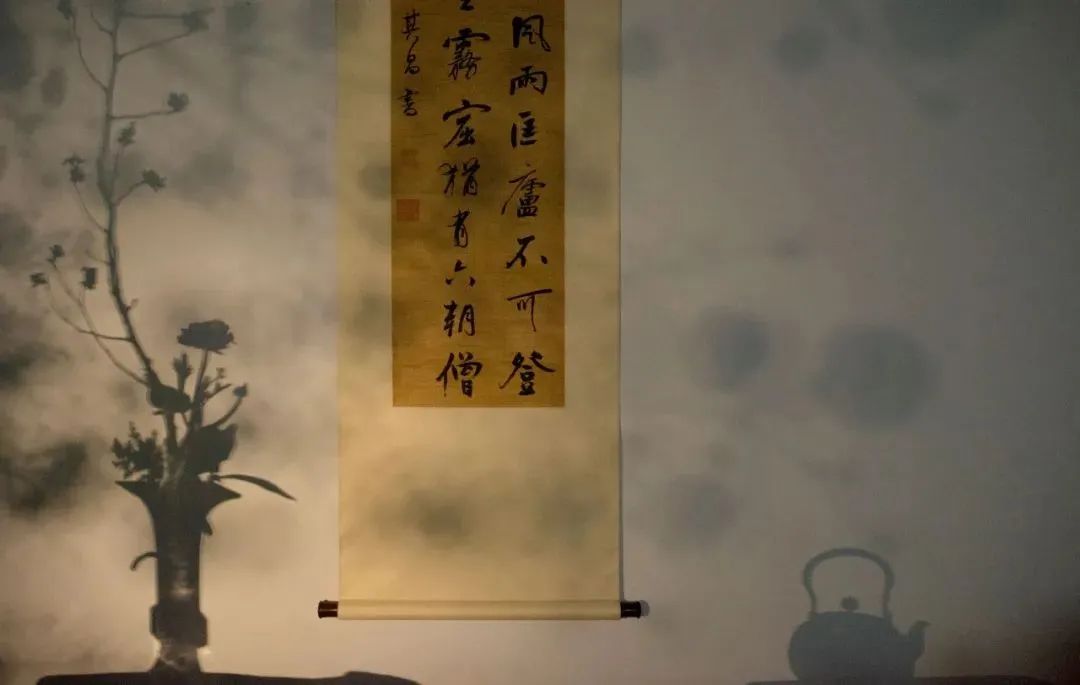 風雨匡廬不可登
霧窟猶有六朝僧
其昌書